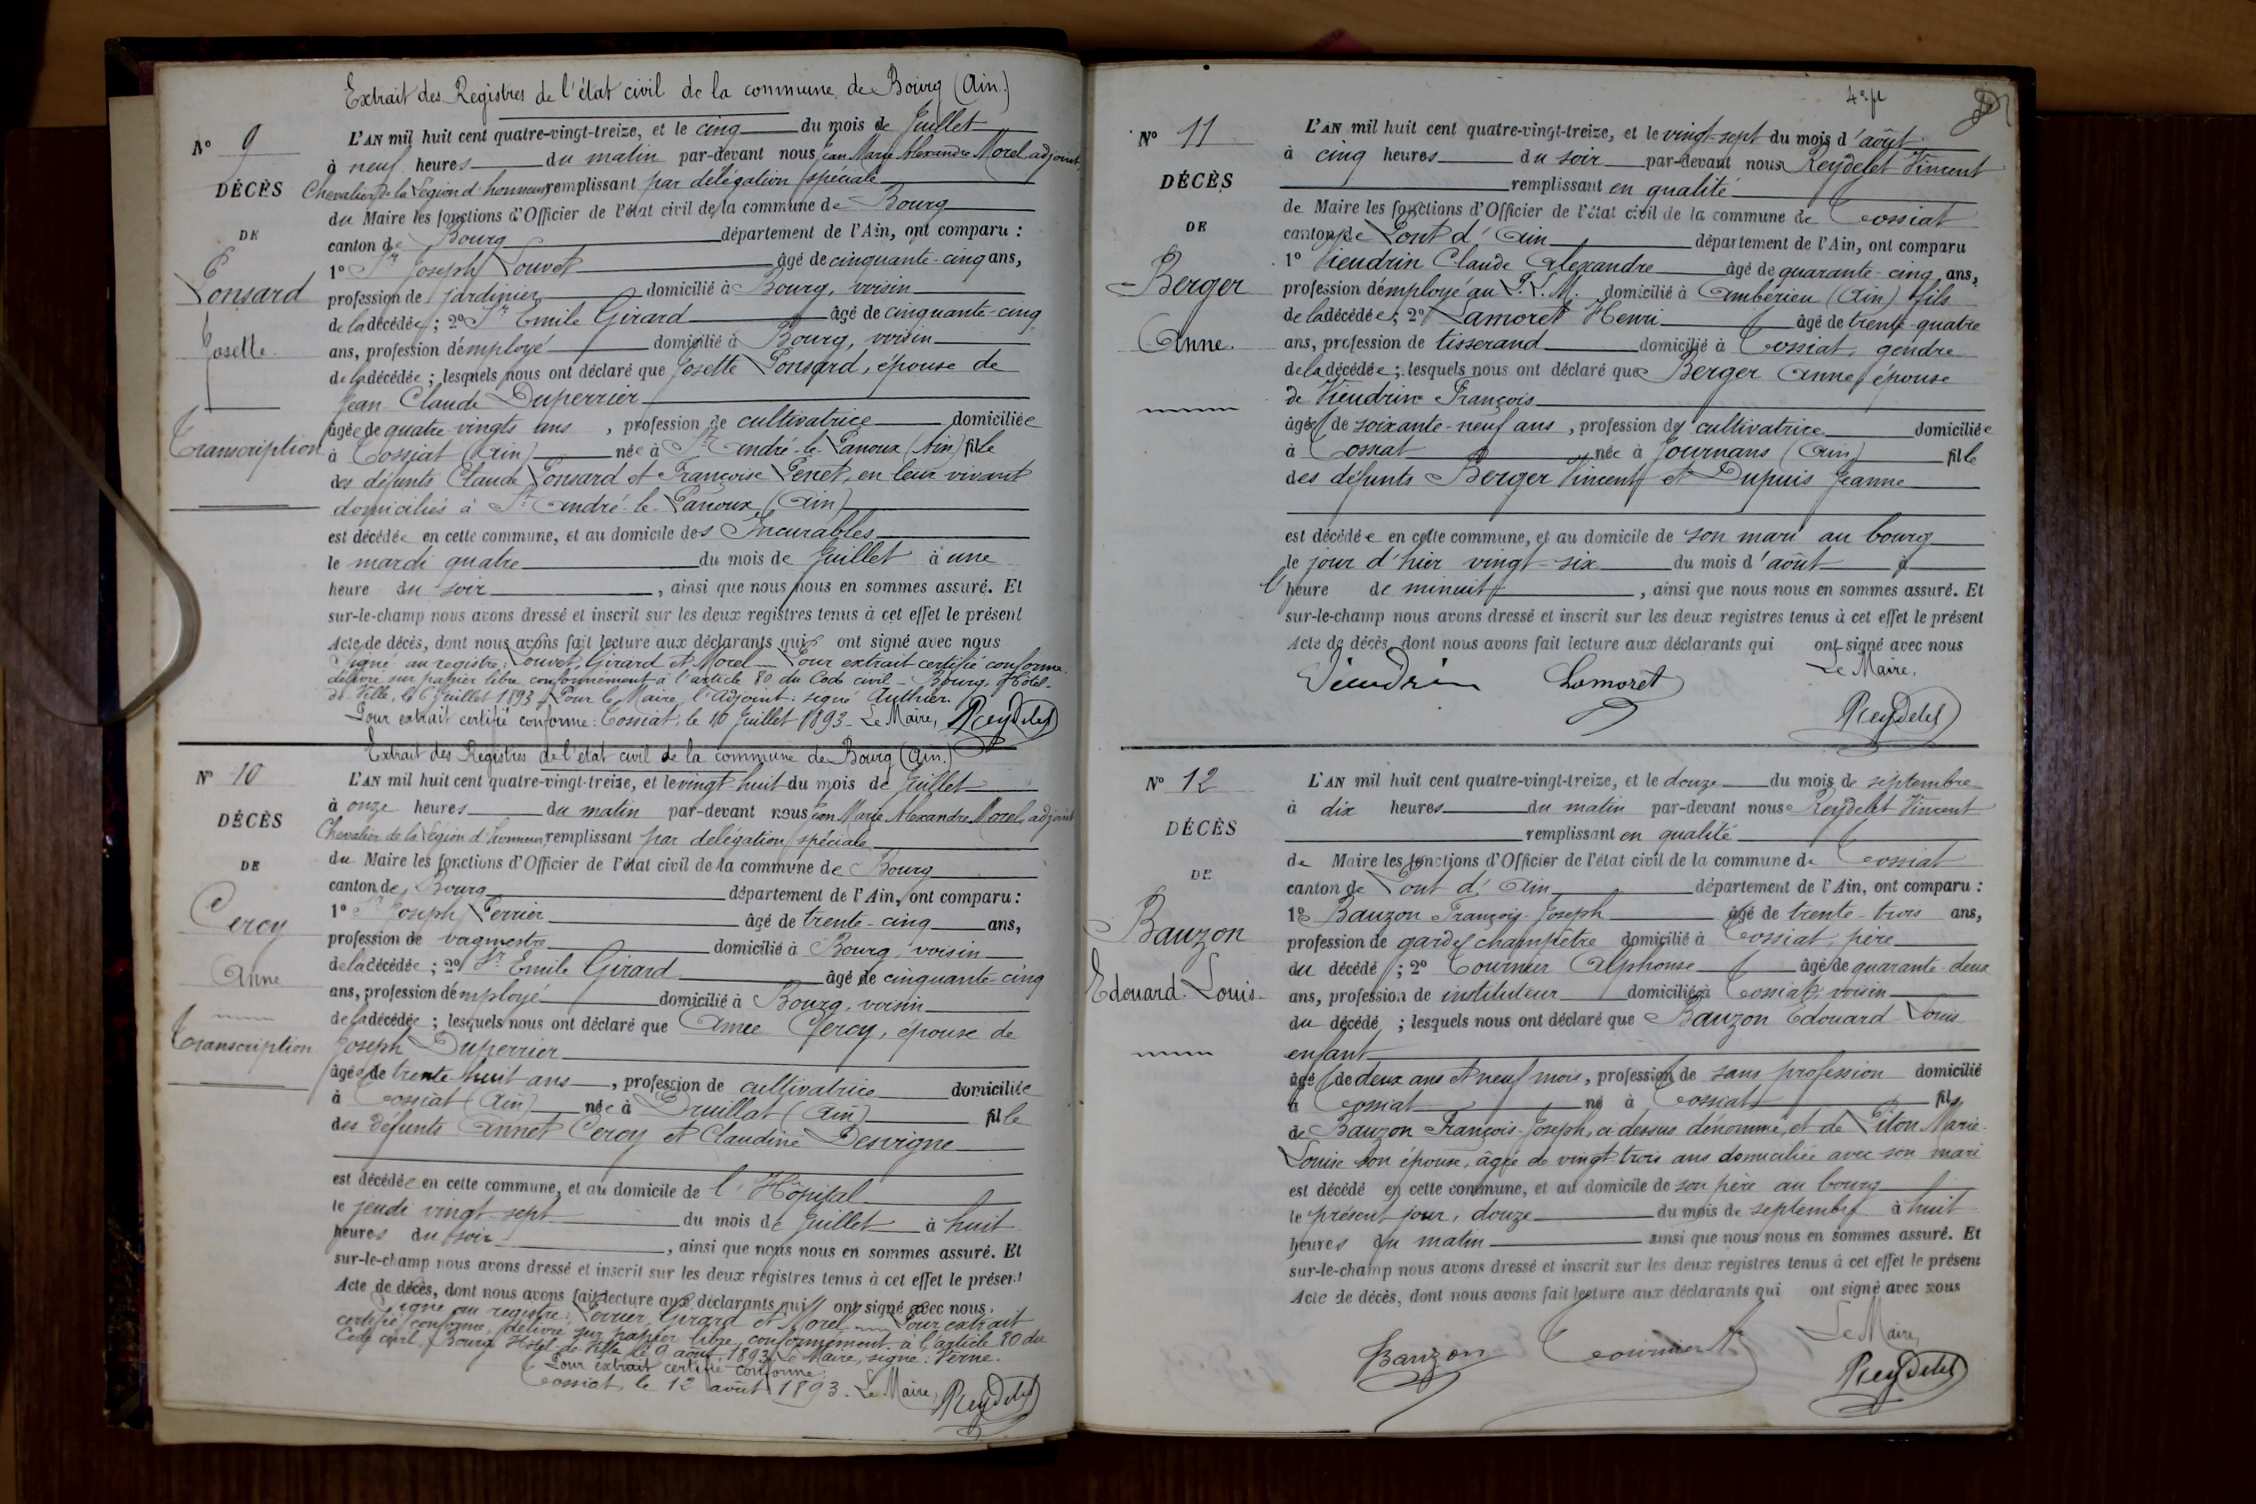 Extrait des Registres de l'état civil de la commune de Bourg (Ain.)
N° 9
DÉCÈS
DE
Ponsard
Josette.
Transcription
L'AN mil huit cent quatre-vingt-treize, et le cinq du mois de Juillet
à neuf heures du matin par-devant nous Jean Marie Alexandre Morel, adjoint,
Chevalier de la Légion d'honneur, remplissant par délégation spéciale
du Maire les fonctions d'Officier de l'état civil de la commune de Bourg
canton de Bourg département de l'Ain, ont comparu :
1° Sr Joseph Louvet âgé de cinquante-cinq ans,
profession de jardinier domicilié à Bourg, voisin
de la décédée ; 2° Sr Emile Girard âgé de cinquante-cinq
ans, profession d'employé domicilié à Bourg, voisin
de la décédée ; lesquels nous ont déclaré que Josette Ponsard, épouse de
Jean Claude Duperrier
âgée de quatre vingts ans , profession de cultivatrice domiciliée
à Tossiat (Ain) née à St André-le-Panoux (Ain) fille
des défunts Claude Ponsard et Françoise Penet, en leur vivant
domiciliés à St André-le-Panoux (Ain)
est décédée en cette commune, et au domicile des Incurables
le mardi quatre du mois de Juillet à une
heure du soir , ainsi que nous nous en sommes assuré. Et
sur-le-champ nous avons dressé et inscrit sur les deux registres tenus à cet effet le présent
Acte de décès, dont nous avons fait lecture aux déclarants qui ont signé avec nous
Signé au registre: Louvet, Girard et Morel Pour extrait certifié conforme
délivré sur papier libre conformément à l'article 80 du Code civil - Bourg, Hôtel-
de-Ville, le 6 Juillet 1893. Pour le Maire, l'Adjoint: signé Authier.
Pour extrait certifié conforme: Tossiat, le 10 Juillet 1893 - Le Maire, Reydelet
Extrait des Registres de l'état civil de la commune de Bourg (Ain.)
N° 10
DÉCÈS
DE
Cercy
Anne
Transcription
L'AN mil huit cent quatre-vingt-treize, et le vingt-huit du mois de Juillet
à onze heures du matin par-devant nous Jean Marie Alexandre Morel, adjoint
Chevalier de la Légion d'honneur, remplissant par délégation spéciale
du Maire les fonctions d'Officier de l'état civil de la commune de Bourg
canton de Bourg département de l'Ain, ont comparu :
1° Sr Joseph Perrier âgé de trente-cinq ans,
profession de vaguemestre domicilié à Bourg, voisin
de la décédée ; 2° Sr Emile Girard âgé de cinquante-cinq
ans, profession d'employé domicilié à Bourg, voisin
de la décédée ; lesquels nous ont déclaré que Anne Cercy, épouse de
Joseph Duperrier
âgée de trente-huit ans , profession de cultivatrice domiciliée
à Tossiat (Ain) née à Druillat (Ain) fille
des défunts Annet Cercy et Claudine Desvigne
est décédée en cette commune, et au domicile de l'Hôpital
le jeudi vingt-sept du mois de Juillet à huit
heures du soir , ainsi que nous nous en sommes assuré. Et
sur-le-champ nous avons dressé et inscrit sur les deux registres tenus à cet effet le présent
Acte de décès, dont nous avons fait lecture aux déclarants qui ont signé avec nous.
Signé au registre: Perrier, Girard et Morel Pour extrait
certifié conforme, délivré sur papier libre, conformément à l'article 80 du
Code civil, Bourg, Hôtel de Ville le 9 août 1893 Le Maire, signé: Verne.
Pour extrait certifié conforme:
Tossiat, le 12 août 1893. Le Maire, Reydelet
N° 11
DÉCÈS
DE
Berger
Anne.
L'AN mil huit cent quatre-vingt-treize, et le vingt-sept du mois d'août
à cinq heures du soir par-devant nous Reydelet Vincent
remplissant en qualité
de Maire les fonctions d'Officier de l'état civil de la commune de Tossiat
canton de Pont d'Ain département de l'Ain, ont comparu
1° Vieudrin Claude Alexandre âgé de quarante-cinq ans,
profession d'employé au P.L.M. domicilié à Ambérieu (Ain) fils
de la décédée ; 2° Lamoret Henri âgé de trente-quatre
ans, profession de tisserand domicilié à Tossiat, gendre
de la décédée ; lesquels nous ont déclaré que Berger Anne, épouse
de Vieudrin François
âgée de soixante-neuf ans , profession de cultivatrice domiciliée
à Tossiat née à Journans (Ain) fille
des défunts Berger Vincent et Dupuis Jeanne
est décédée en cette commune, et au domicile de son mari au bourg
le jour d'hier vingt-six du mois d'août à
l'heure de minuit , ainsi que nous nous en sommes assuré. Et
sur-le-champ nous avons dressé et inscrit sur les deux registres tenus à cet effet le présent
Acte de décès, dont nous avons fait lecture aux déclarants qui ont signé avec nous
Vieudrin Lamoret Le Maire,
Reydelet
N° 12
DÉCÈS
DE
Bauzon
Edouard Louis
L'AN mil huit cent quatre-vingt-treize, et le douze du mois de septembre
à dix heures du matin par-devant nous Reydelet Vincent
remplissant en qualité
de Maire les fonctions d'Officier de l'état civil de la commune de Tossiat
canton de Pont d'Ain département de l'Ain, ont comparu :
1° Bauzon François-Joseph âgé de trente-trois ans,
profession de garde champêtre domicilié à Tossiat, père
du décédé ; 2° Tournier Alphonse âgé de quarante-deux
ans, profession de instituteur domicilié à Tossiat, voisin
du décédé ; lesquels nous ont déclaré que Bauzon Edouard Louis
enfant
âgé de deux ans et neuf mois, profession de sans profession domicilié
à Tossiat né à Tossiat fils
de Bauzon François-Joseph, ci-dessus dénommé, et de Piton Marie-
Louise son épouse, âgée de vingt-trois ans domiciliée avec son mari
est décédé en cette commune, et au domicile de son père au bourg
le présent jour, douze du mois de septembre à huit
heures du matin ainsi que nous nous en sommes assuré. Et
sur-le-champ nous avons dressé et inscrit sur les deux registres tenus à cet effet le présent
Acte de décès, dont nous avons fait lecture aux déclarants qui ont signé avec nous
Bauzon Tournier A. Le Maire,
Reydelet